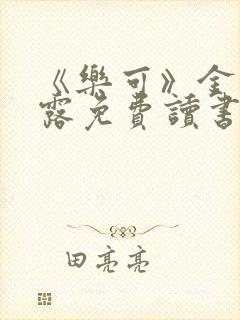 《樂可》金
露免費讀書
田亮亮